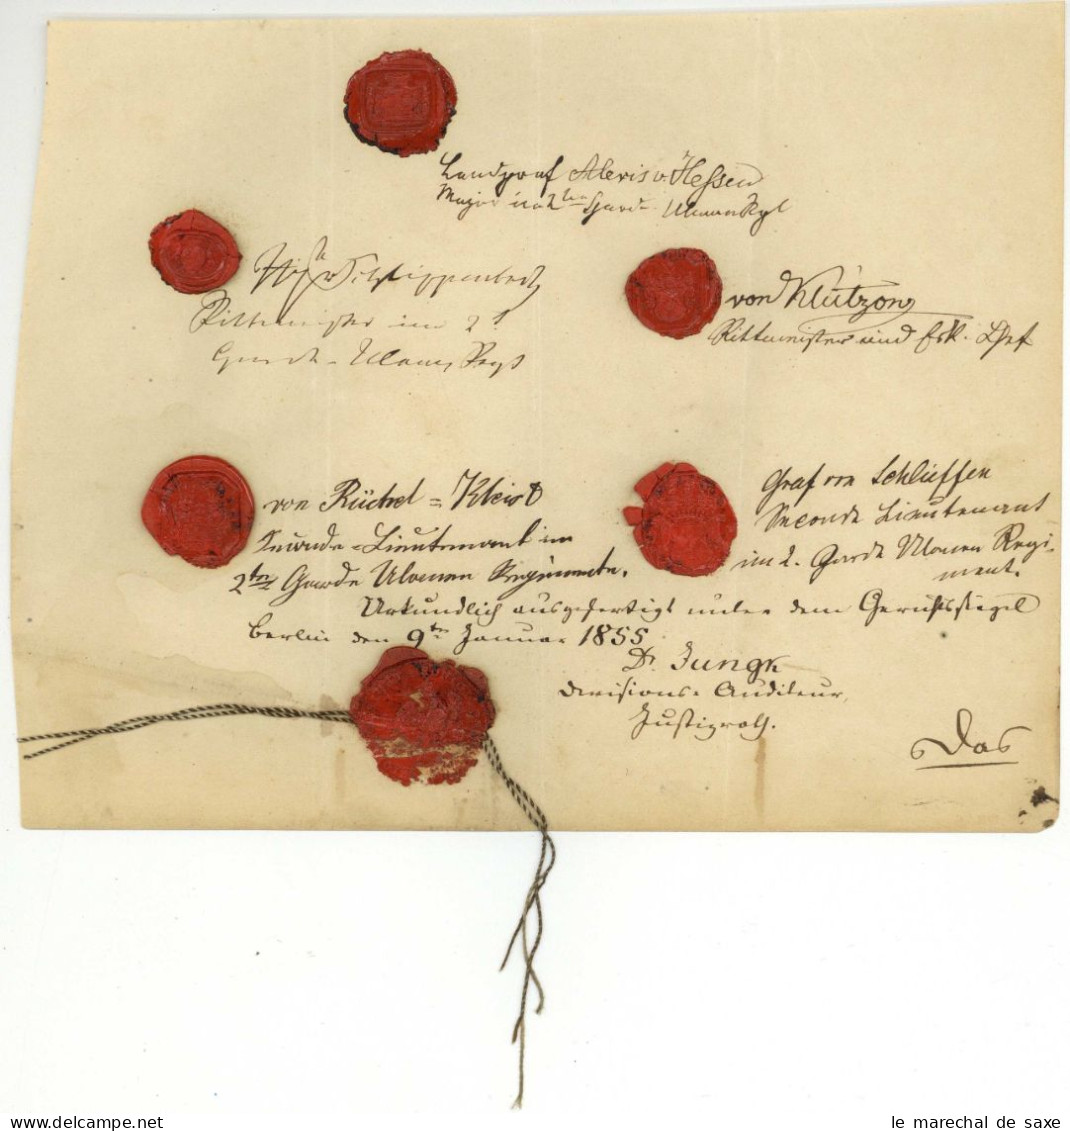 Landgraf Alexis v Hessen
Major im 2ten Gard. Ulanen Rgt
v Schlippenbach
Rittmeister im 2t
Garde-Ulanen Regt
von Klützow
Rittmeister und Esk. Chef
von Rüchel=Kleist
Seconde-Lieutenant im
2ten Garde Ulanen Regimente.
Graf von Schlieffen
Seconde Lieutenant
im 2. Garde Ulanen Regi-
ment.
Urkundlich ausgefertigt unter dem Gerichtssiegel
Berlin den 9ten Januar 1855
Dr. Jungk
Divisions-Auditeur,
Justizrath.
Das
le marechal de saxe